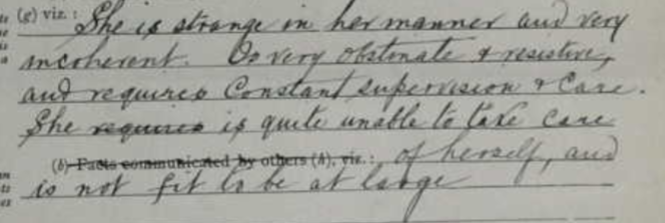 (g) viz.: She is strange in her manner and very
incoherent. Is very obstinate & resistive,
and requires Constant supervision & Care.
She requires is quite unable to take care
(b) Facts communicated by others (h), viz.: of herself, and
is not fit to be at large